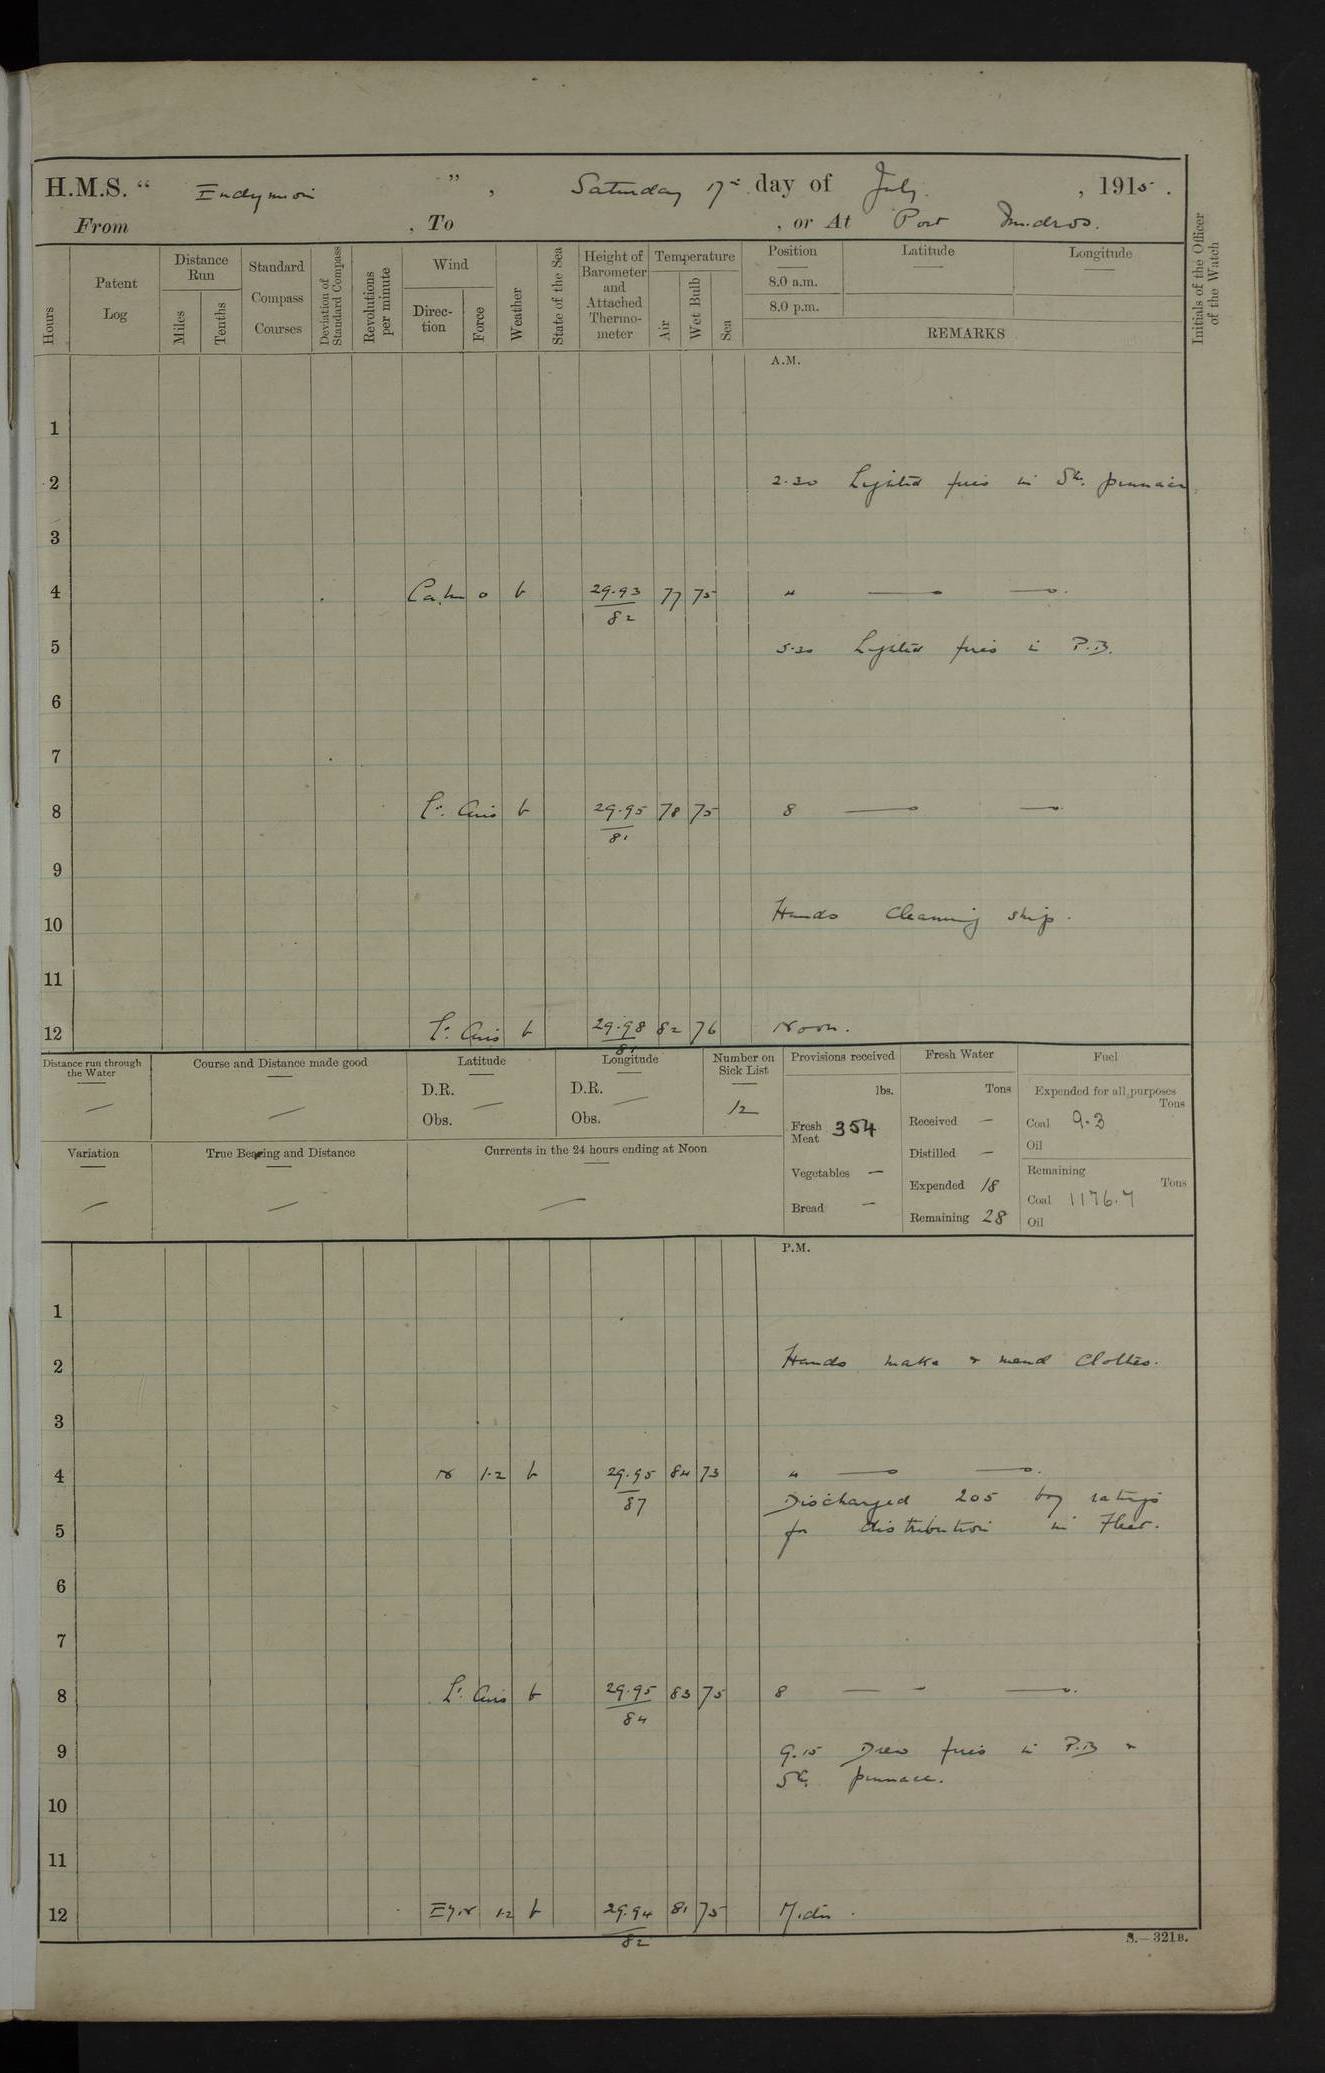 H.M.S. “ Endymion ” , Saturday 17th day of July , 1915 .
From , To , or At Port Mudros.
Hours
Patent Log
Distance Run
Miles
Tenths
Standard Compass Courses
Deviation of Standard Compass
Revolutions per minute
Wind
Direction
Force
Weather
State of the Sea
Height of Barometer and Attached Thermometer
Temperature
Air
Wet Bulb
Sea
Position
8.0 a.m.
8.0 p.m.
Latitude
Longitude
REMARKS
Initials of the Officer of the Watch
A.M.
1
2 2.30 Lighted fires in St. pinnace
3
4 Calm 0 b 29.93/82 77 75 4 — —.
5 5.30 Lighted fires in P.B.
6
7
8 Lt. Airs b 29.95/81 78 75 8 — —
9
10 Hands Cleaning ship.
11
12 Lt. Airs b 29.98/81 82 76 Noon.
Distance run through the Water
—
Course and Distance made good
—
Latitude
D.R. —
Obs.
Longitude
D.R. —
Obs.
Number on Sick List
12
Provisions received
lbs.
Fresh Meat 354
Vegetables —
Bread —
Fresh Water
Tons
Received —
Distilled —
Expended 18
Remaining 28
Fuel
Expended for all purposes
Tons
Coal 9.3
Oil
Remaining
Tons
Coal 1176.7
Oil
Variation
—
True Bearing and Distance
—
Currents in the 24 hours ending at Noon
—
P.M.
1
2 Hands make & mend Clothes.
3
4 N 1.2 b 29.95/87 84 73 4 — —.
Discharged 205 boy ratings
5 for distribution in Fleet.
6
7
8 Lt. Airs b 29.95/84 83 75 8 — - —.
9 9.15 Drew fires in P.B &
St. pinnace.
10
11
12 E'ly N 1.2 b 29.94/82 81 75 Midn.
S.—321B.